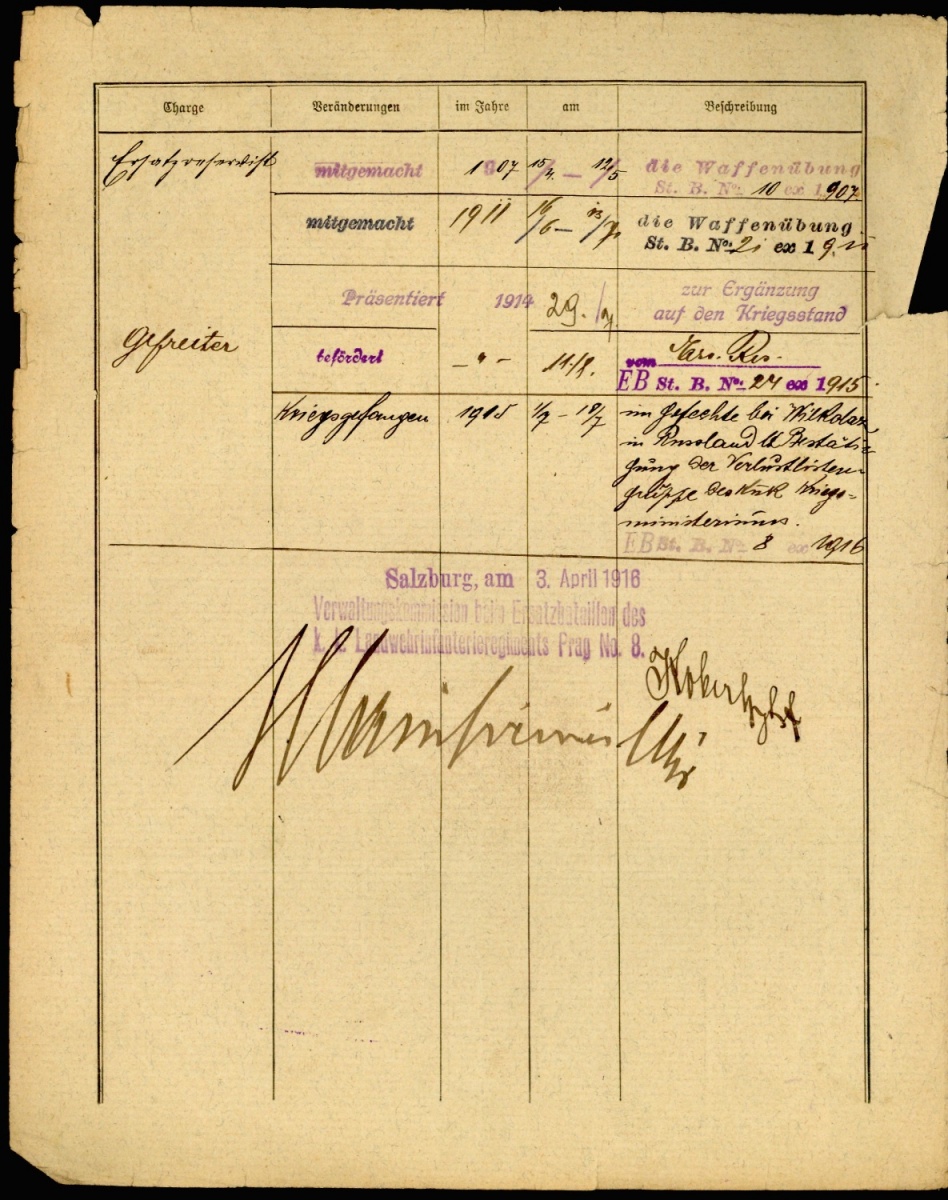 Charge Veränderungen im Jahre am Beschreibung
Ersatzreservist mitgemacht 1907 15/4. — 12/5 die Waffenübung
St. B. No. 10 ex 1907
mitgemacht 1911 16/6 — 13/7. die Waffenübung
St. B. No. 21 ex 1911
Präsentiert 1914 29./7. zur Ergänzung
auf den Kriegsstand
Gefreiter befördert — " — 11./8. vom Ers. Res.
EB St. B. No. 27 ex 1915
Kriegsgefangen 1915 1/7 — 18/7 im Gefechte bei
in Russland lt Bestäti-
gung der Verlustlisten-
gruppe des kuk Kriegs-
ministeriums.
EB St. B. No. 8 ex 1916
Salzburg, am 3. April 1916
Verwaltungskommission beim Ersatzbataillon des
k. k. Landwehrinfanterieregiments Prag No. 8.